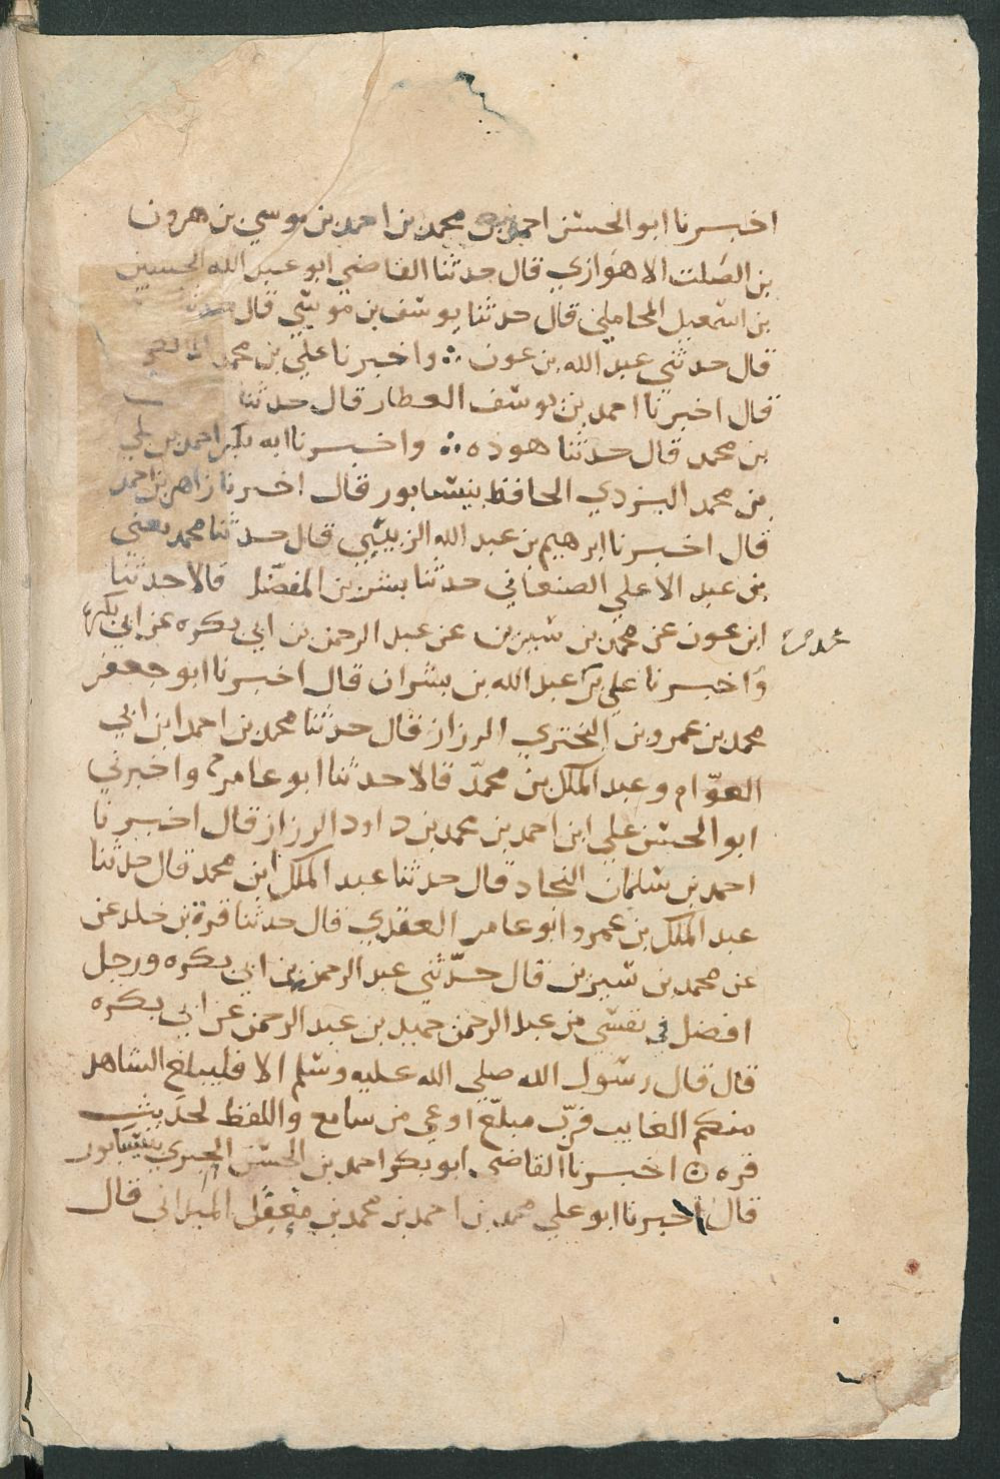 اخبرنا ابو الحسن احمد بن محمد بن احمد بن موسي بن هرون
بن الصلت الاهوازي قال حدثنا القاضي ابو عبد الله الحسين
بن اسمعيل المحاملي قال حدثنا يوسف بن موسي قال حدثنا
قال حدثني عبد الله بن عون ∴ واخبرنا علي بن محمد
قال اخبرنا احمد بن يوسف العطار قال حدثنا
بن محمد قال حدثنا هوذه ∴ واخبرنا ابو بكر احمد بن علي
بن محمد اليزدي الحافظ بنيسابور قال اخبرنا زاهر بن احمد
قال اخبرنا ابرهيم بن عبد الله الزبيبي قال حدثنا محمد يعني
بن عبد الاعلي الصنعاني حدثنا بشر بن المفضل قالا حدثنا
ابن عون عن محمد بن سيرين عن عبد الرحمن بن ابي بكره عن ابي بكره
واخبرنا علي بن عبد الله بن بشران قال اخبرنا ابو جعفر
محمد بن عمرو بن البختري الرزاز قال حدثنا محمد بن احمد ابن ابي
العوّام وعبد الملك بن محمّد قالا حدثنا ابو عامر واخبرني
ابو الحسن علي ابن احمد بن محمد بن داود الرزاز قال اخبرنا
احمد بن سلمان النجاد قال حدثنا عبد الملك ابن محمد قال حدثنا
عبد الملك بن عمرو ابو عامر العقدي قال حدثنا قرة بن خلد عن
عن محمد بن سيرين قال حدّثني عبد الرحمن بن ابي بكره ورجل
افضل في نفسي من عبد الرحمن حميد بن عبد الرحمن عن ابي بكره
قال قال رسول الله صلي الله عليه وسلم الا فليبلغ الشاهد
منكم الغايب فربّ مبلّغ اوعي من سامع واللفظ لحديث
قره ⊙ اخبرنا القاضي ابو بكر احمد بن الحسن الحيري بنيسابور
قال اخبرنا ابو علي محمد بن احمد بن محمد بن معقل الميداني قال